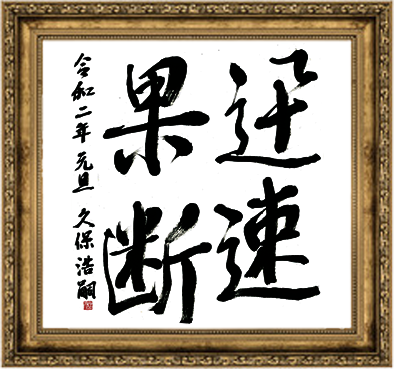 迅速
果断
令和二年 元旦 久保浩嗣